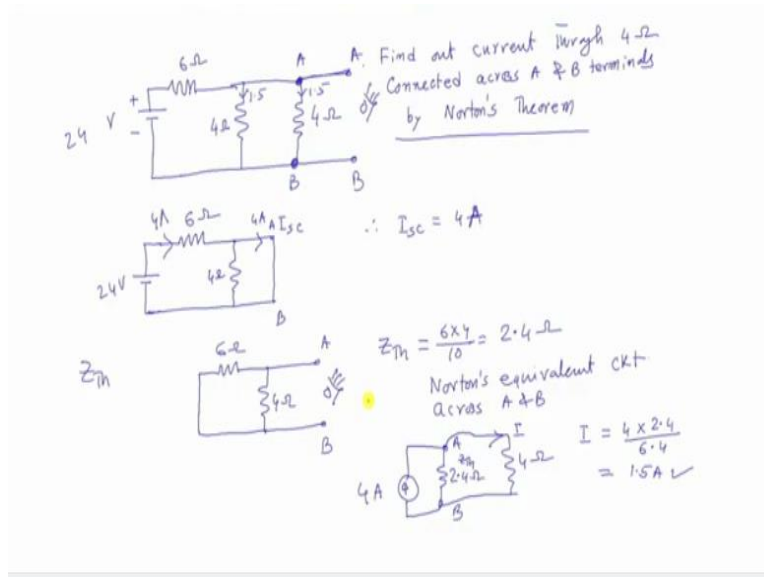 6Ω
A
A
Find out current through 4Ω
Connected across A & B terminals
by Norton's Theorem
1.5
1.5
4Ω
4Ω
24 V
+
-
B
B
4A 6Ω
4A A Isc
∴ Isc = 4A
24V
4Ω
B
ZTh
6Ω
A
4Ω
B
ZTh = 6×4/10 = 2.4Ω
Norton's equivalent ckt
across A & B
A
I
ZTh
2.4Ω
4Ω
4A
B
I = 4 × 2.4/6.4
= 1.5A ✓